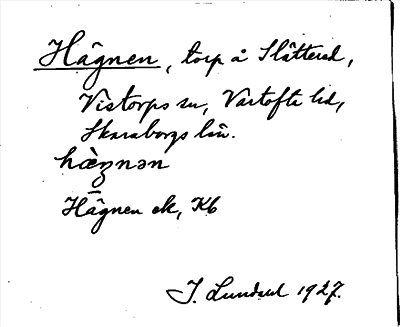 Hägnen, torp å Slätterud,
Vistorps sn, Vartofta hd,
Skaraborgs län.
hæ̀ŋnən
Hägnen ek, Kb
J. Lundahl 1927.